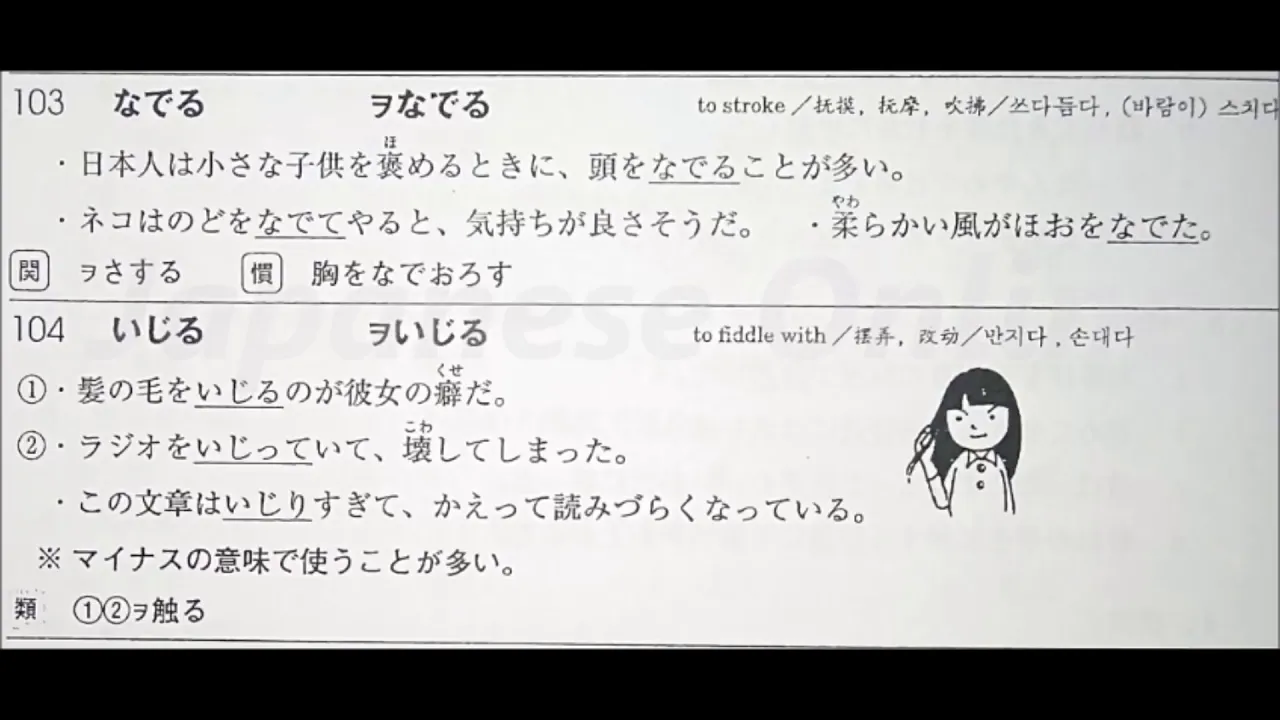 103 なでる ヲなでる to stroke／抚摸，抚摩，吹拂／쓰다듬다, (바람이) 스치다
・日本人は小さな子供を褒めるときに、頭をなでることが多い。
ほ
・ネコはのどをなでてやると、気持ちが良さそうだ。 ・柔らかい風がほおをなでた。
やわ
関 ヲさする 慣 胸をなでおろす
Japanese Onli
104 いじる ヲいじる to fiddle with／摆弄，改动／만지다, 손대다
①・髪の毛をいじるのが彼女の癖だ。
くせ
②・ラジオをいじっていて、壊してしまった。
こわ
・この文章はいじりすぎて、かえって読みづらくなっている。
※ マイナスの意味で使うことが多い。
類 ①②ヲ触る